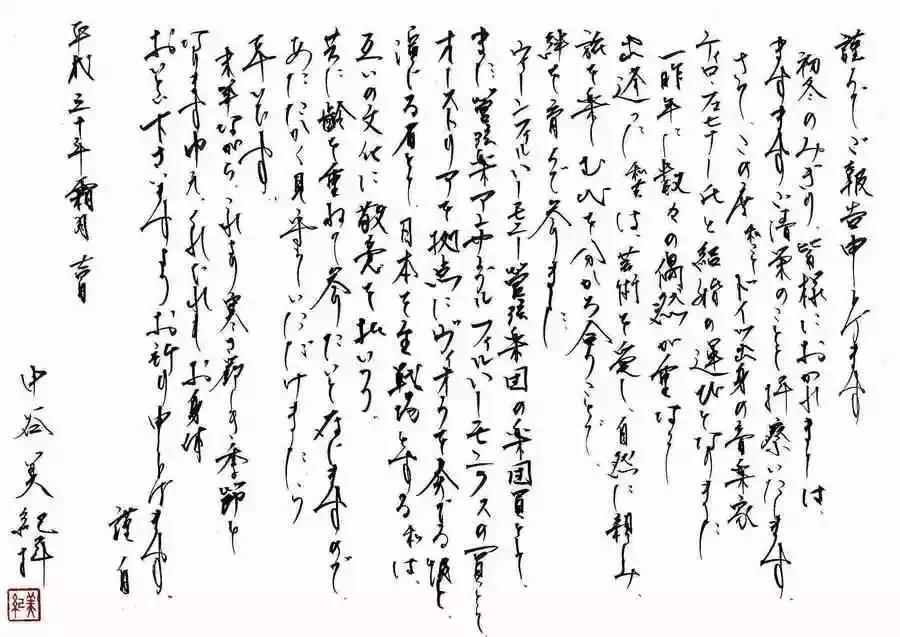 謹んでご報告申し上げます
初冬のみぎり、皆様におかれましては、
ますますご清栄のことと拝察いたします。
さて、この度私こと、ドイツ出身の音楽家
ティロ・フェヒナー氏と結婚の運びとなりました
一昨年に数々の偶然が重なり
出逢った私共は、芸術を愛し、自然に親しみ、
旅を楽しむひとときを分かち合うことで、
絆を育んで参りました。
ウィーンフィルハーモニー管弦楽団の楽団員として、
また、管弦楽アンサンブルフィルハーモニクスの一員として
オーストリアを拠点にヴィオラを奏でる彼と、
演じる者として、日本を主戦場とする私は、
互いの文化に敬意を払いつつ、
共に齢を重ねて参りたいと存じますので、
あたたかく見守っていただけましたら
幸いです。
末筆ながら、これより寒さ厳しき季節と
なりますゆえ、くれぐれもお身体
おいといくださいますようお祈り申し上げます。
謹白
平成三十年霜月 吉日
中谷美紀拝
美紀